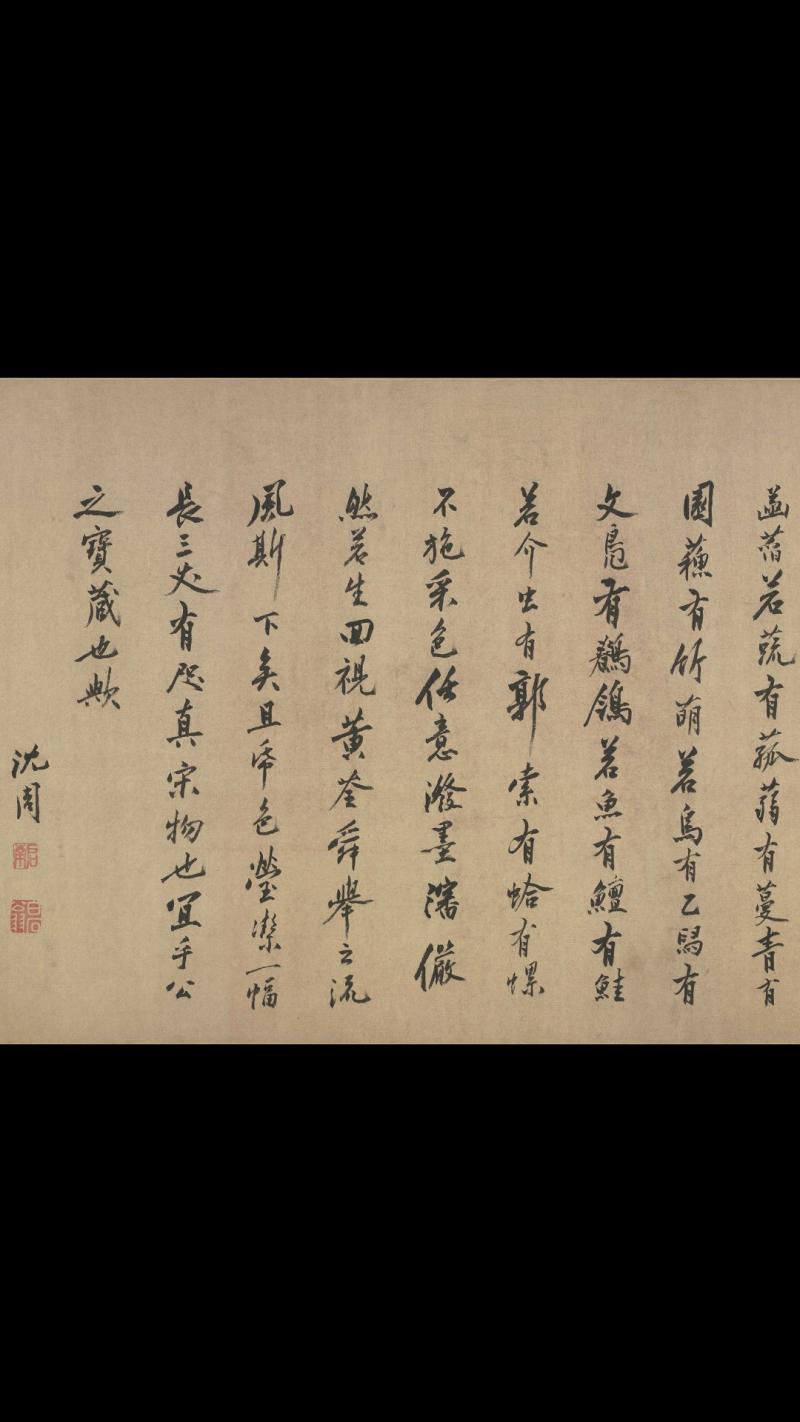 菡萏若蔬有菰蒻有蔓青有
園蘓有竹萌若鳥有乙舄有
文鳧有鵓鴿若魚有鱣有鮭
若介虫有郭索有蛤有螺
不施采色任意潑墨瀋儼
然若生回視黄荃舜舉之流
風斯下矣且帋色瑩潔一幅
長三丈有咫真宋物也宜乎公
之寶蔵也歟
沈周